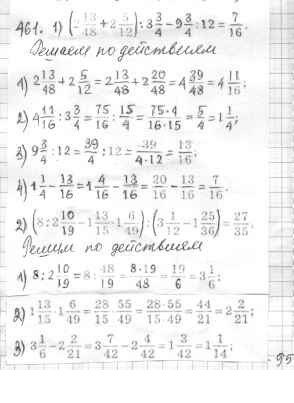 461. 1) (2 13/48 + 2 5/12) : 3 3/4 − 9 3/4 : 12 = 7/16.
Решаем по действиям
1) 2 13/48 + 2 5/12 = 2 13/48 + 2 20/48 = 4 39/48 = 4 11/16;
2) 4 11/16 : 3 3/4 = 75/16 : 15/4 = 75·4/16·15 = 5/4 = 1 1/4;
3) 9 3/4 : 12 = 39/4 : 12 = 39/4·12 = 13/16;
4) 1 1/4 − 13/16 = 1 4/16 − 13/16 = 20/16 − 13/16 = 7/16.
2) (8 : 2 10/19 − 1 13/15 · 1 6/49) : (3 1/12 − 1 25/36) = 27/35.
Решим по действиям
1) 8 : 2 10/19 = 8 : 48/19 = 8·19/48 = 19/6 = 3 1/6;
2) 1 13/15 · 1 6/49 = 28/15 · 55/49 = 28·55/15·49 = 44/21 = 2 2/21;
3) 3 1/6 − 2 2/21 = 3 7/42 − 2 4/42 = 1 3/42 = 1 1/14;
95